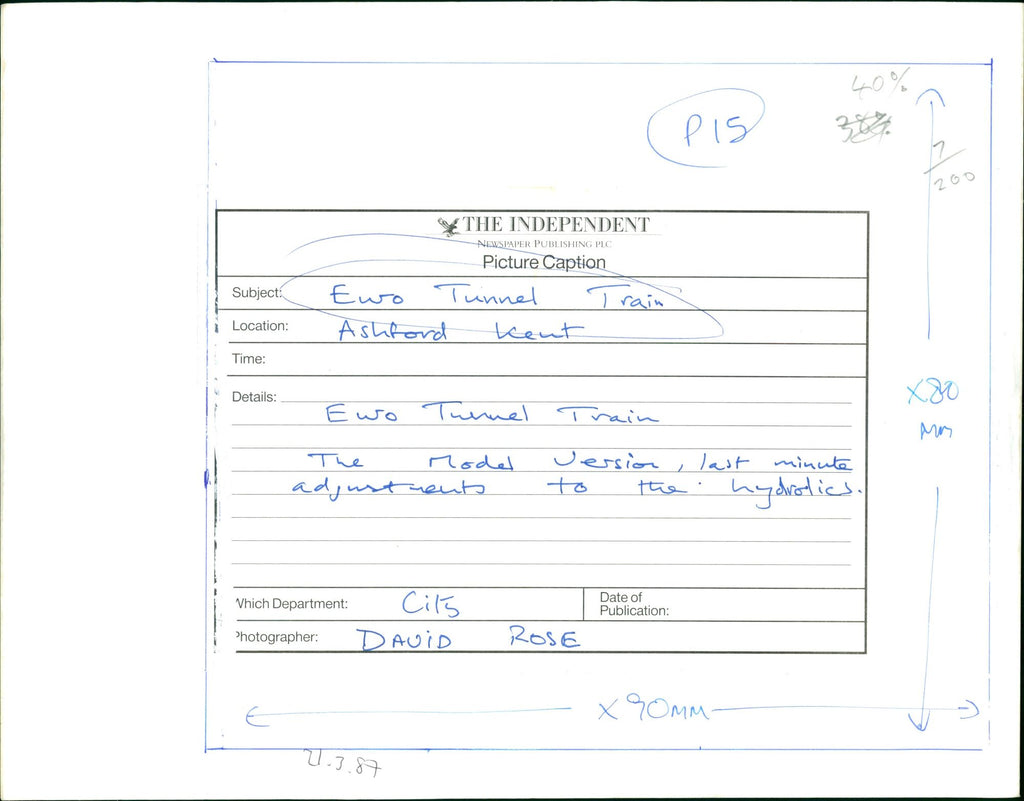 40%
P15
7/200
THE INDEPENDENT
NEWSPAPER PUBLISHING PLC
Picture Caption
Subject: Euro Tunnel Train
Location: Ashford Kent
Time:
Details:
Euro Tunnel Train
The Model Version, last minute
adjustments to the hydrolics.
X80
MM
Which Department: City
Date of
Publication:
Photographer: DAVID ROSE
X 90MM
21.3.87